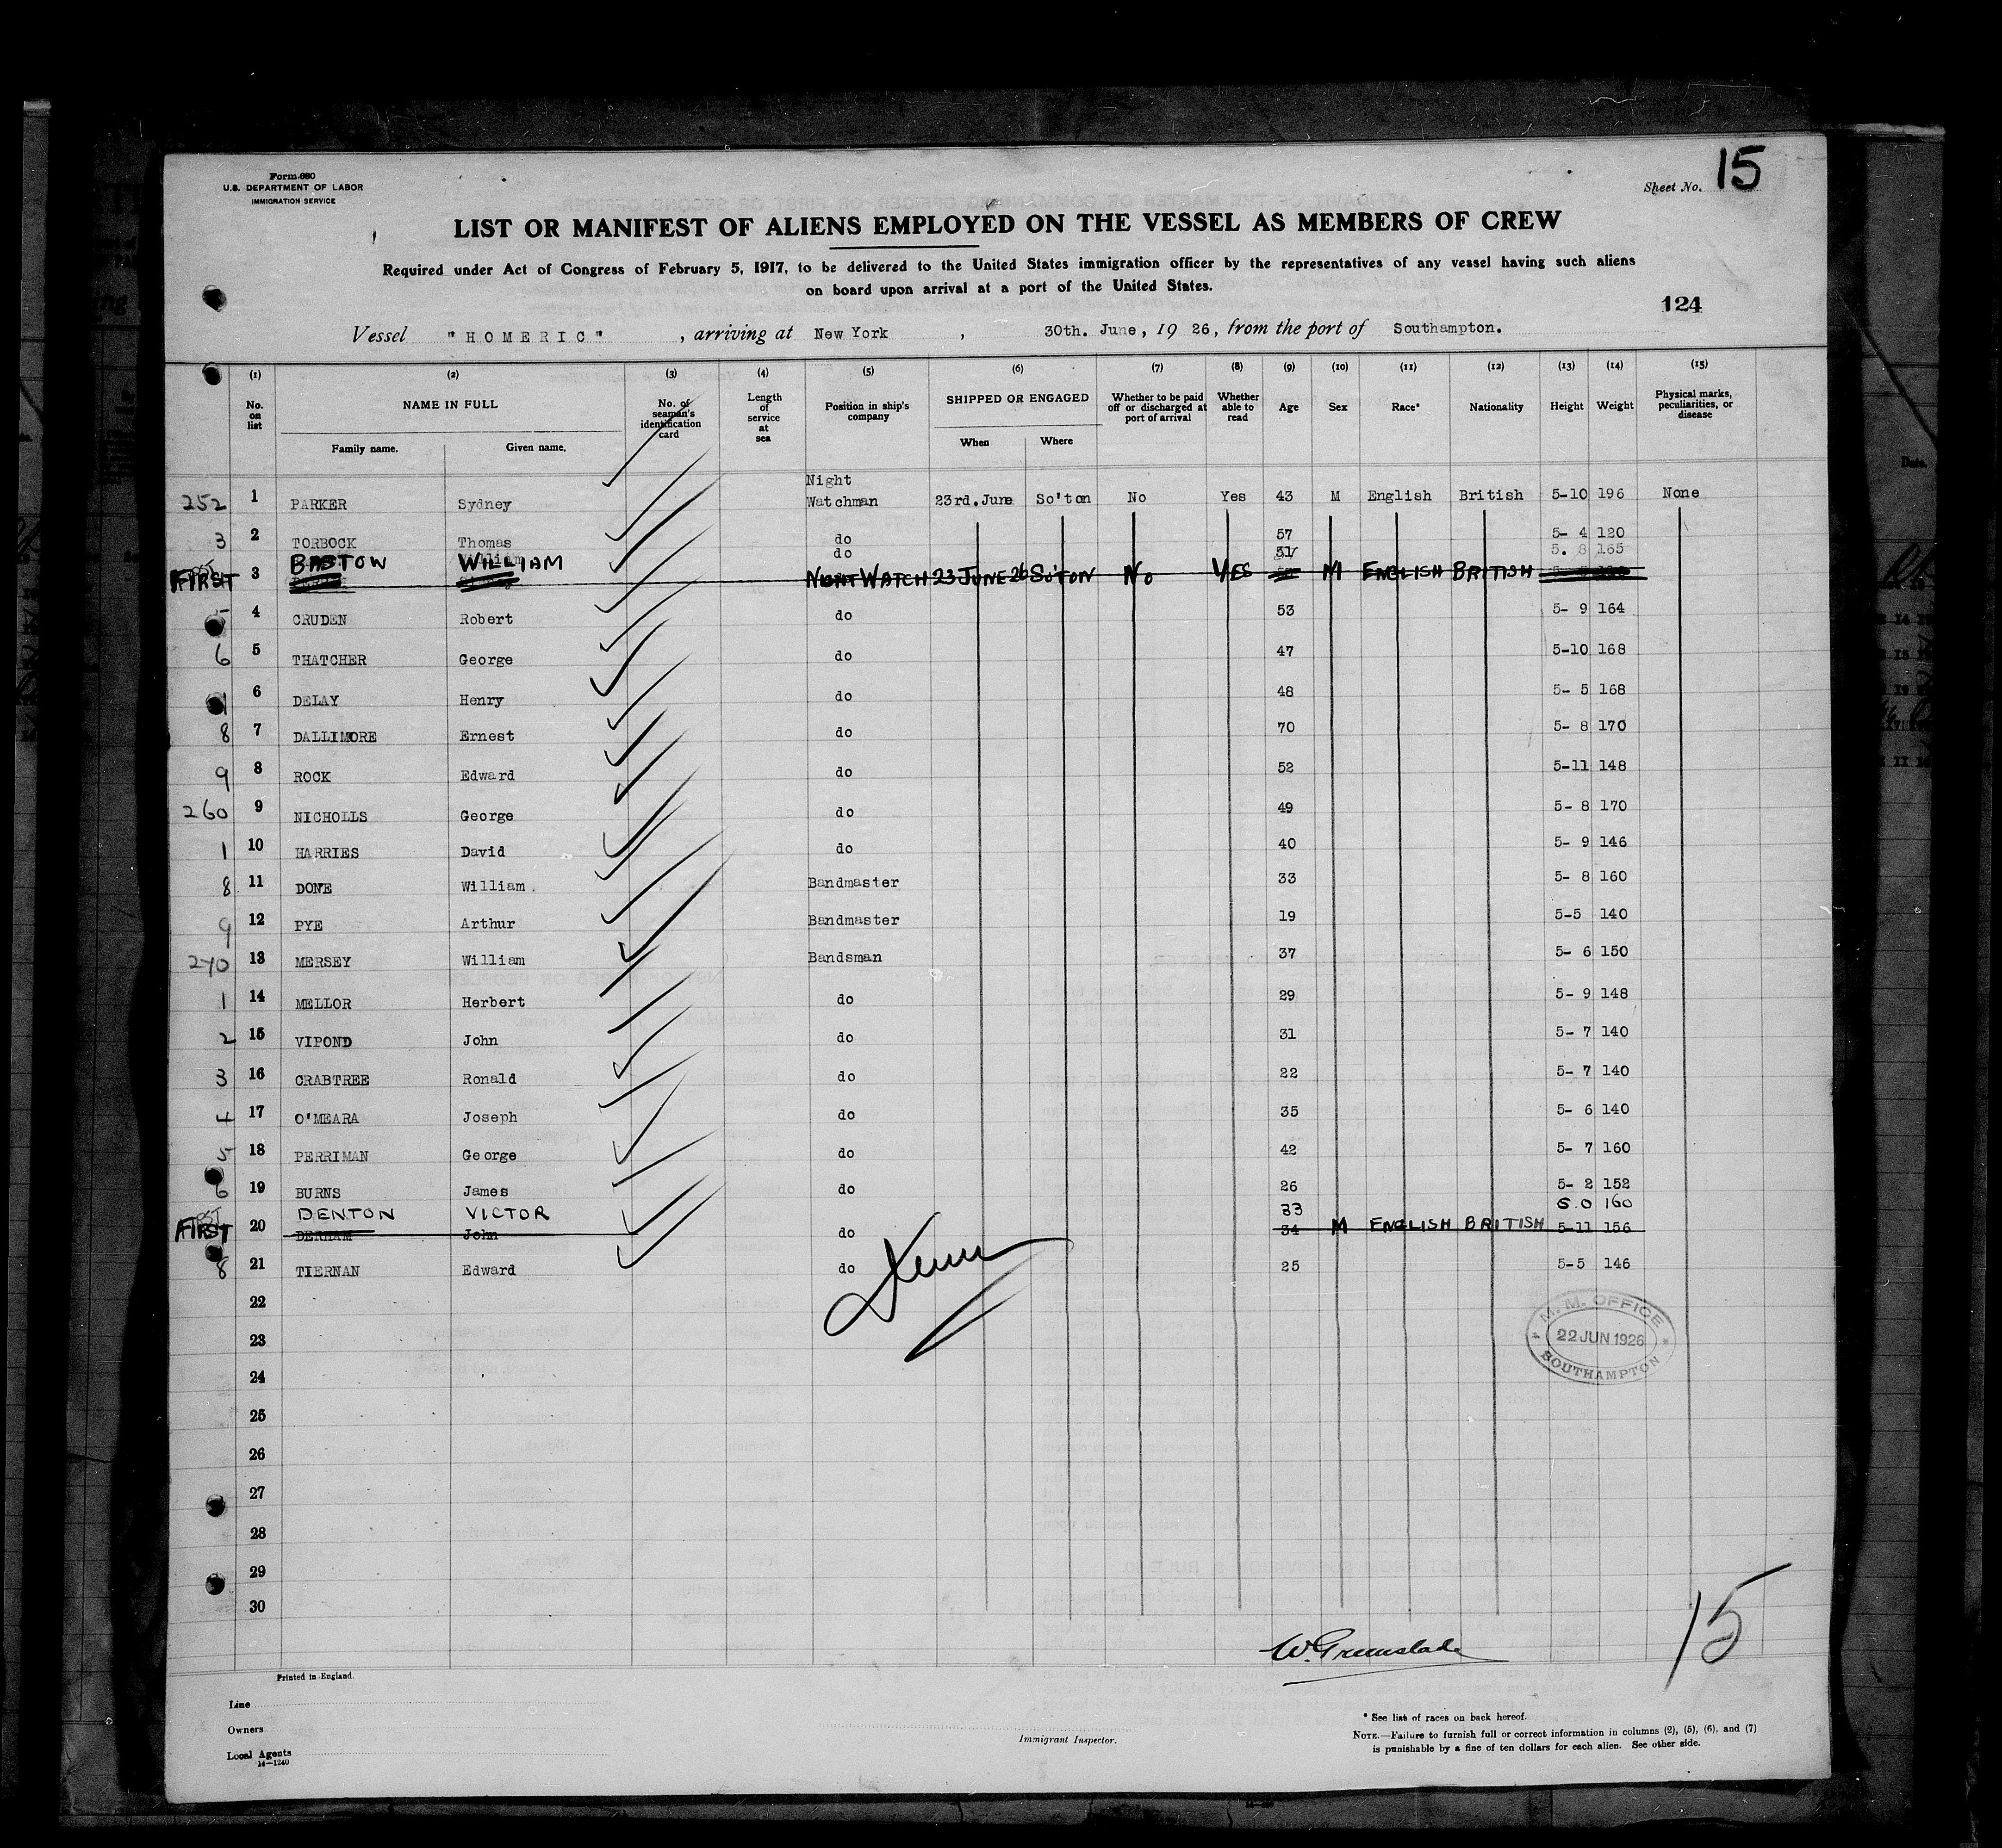 Form 680
U.S. DEPARTMENT OF LABOR
IMMIGRATION SERVICE
Sheet No. 15
LIST OR MANIFEST OF ALIENS EMPLOYED ON THE VESSEL AS MEMBERS OF CREW
Required under Act of Congress of February 5, 1917, to be delivered to the United States immigration officer by the representatives of any vessel having such aliens
on board upon arrival at a port of the United States.
124
Vessel "HOMERIC", arriving at New York, 30th. June, 19 26, from the port of Southampton.
(1) (2) (3) (4) (5) (6) (7) (8) (9) (10) (11) (12) (13) (14) (15)
No. on list NAME IN FULL Family name. Given name. No. of seaman's identification card Length of service at sea Position in ship's company SHIPPED OR ENGAGED When Where Whether to be paid off or discharged at port of arrival Whether able to read Age Sex Race* Nationality Height Weight Physical marks, peculiarities, or disease
252 1 PARKER Sydney Night Watchman 23rd. June So'ton No Yes 43 M English British 5-10 196 None
3 2 TORBOCK Thomas do 57 5- 4 120
do 31 5. 8 165
FIRST 3 BASTOW WILLIAM NIGHT WATCH 23 JUNE 26 SO'TON NO YES M ENGLISH BRITISH
5 4 CRUDEN Robert do 53 5- 9 164
6 5 THATCHER George do 47 5-10 168
6 DELAY Henry do 48 5- 5 168
8 7 DALLIMORE Ernest do 70 5- 8 170
9 8 ROCK Edward do 52 5-11 148
260 9 NICHOLLS George do 49 5- 8 170
1 10 HARRIES David do 40 5- 9 146
8 11 DONE William Bandmaster 33 5- 8 160
9 12 PYE Arthur Bandmaster 19 5-5 140
270 13 MERSEY William Bandsman 37 5- 6 150
1 14 MELLOR Herbert do 29 5- 9 148
2 15 VIPOND John do 31 5- 7 140
3 16 CRABTREE Ronald do 22 5- 7 140
4 17 O'MEARA Joseph do 35 5- 6 140
5 18 PERRIMAN George do 42 5- 7 160
6 19 BURNS James do 26 5- 2 152
DENTON VICTOR 33 6.0 160
FIRST 20 DERHAM John do 34 M ENGLISH BRITISH 5-11 156
8 21 TIERNAN Edward do 25 5-5 146
22
23
24
25
26
27
28
29
30
M. M. OFFICE
22 JUN 1926
SOUTHAMPTON
W. Greenslade
15
Printed in England.
Line
Owners
Local Agents
14-1240
Immigrant Inspector.
* See list of races on back hereof.
NOTE.—Failure to furnish full or correct information in columns (2), (5), (6), and (7)
is punishable by a fine of ten dollars for each alien. See other side.